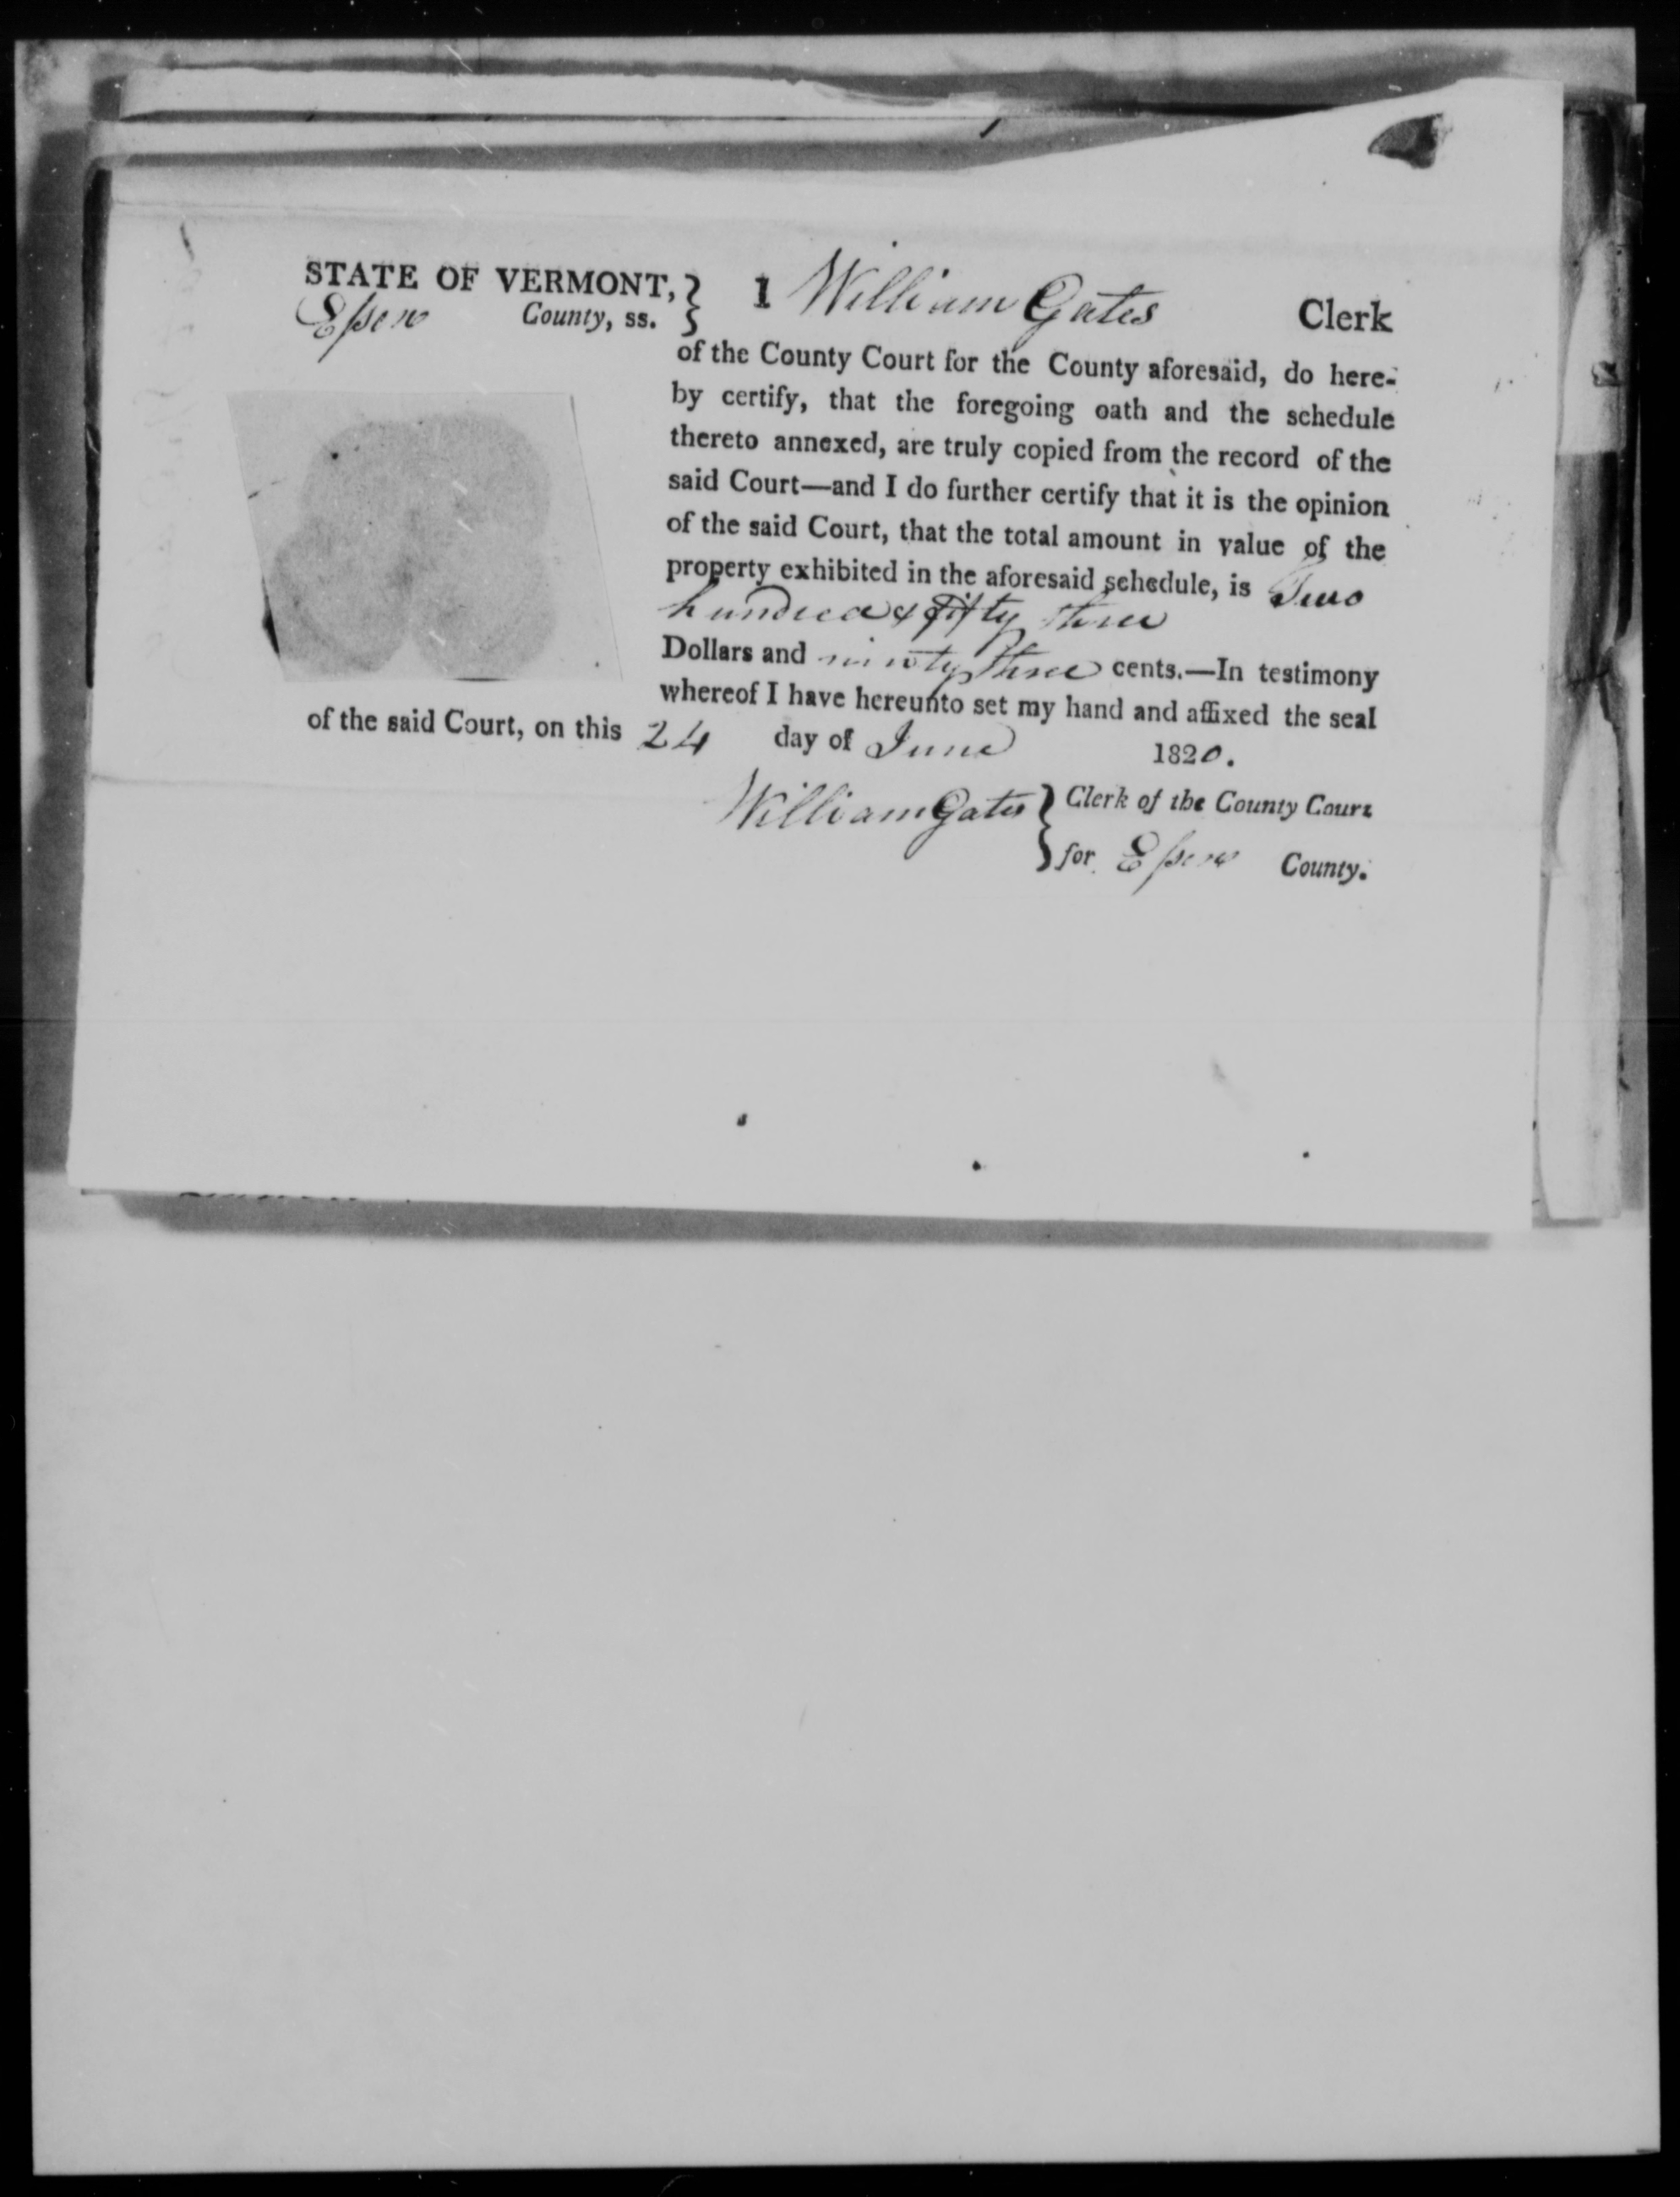 STATE OF VERMONT, } I William Gates Clerk
Essex County, ss. }
of the County Court for the County aforesaid, do here-
by certify, that the foregoing oath and the schedule
thereto annexed, are truly copied from the record of the
said Court—and I do further certify that it is the opinion
of the said Court, that the total amount in value of the
property exhibited in the aforesaid schedule, is Two
hundred & fifty three
Dollars and ninety three cents.—In testimony
whereof I have hereunto set my hand and affixed the seal
of the said Court, on this 24 day of June 1820.
William Gates } Clerk of the County Court
} for Essex County.